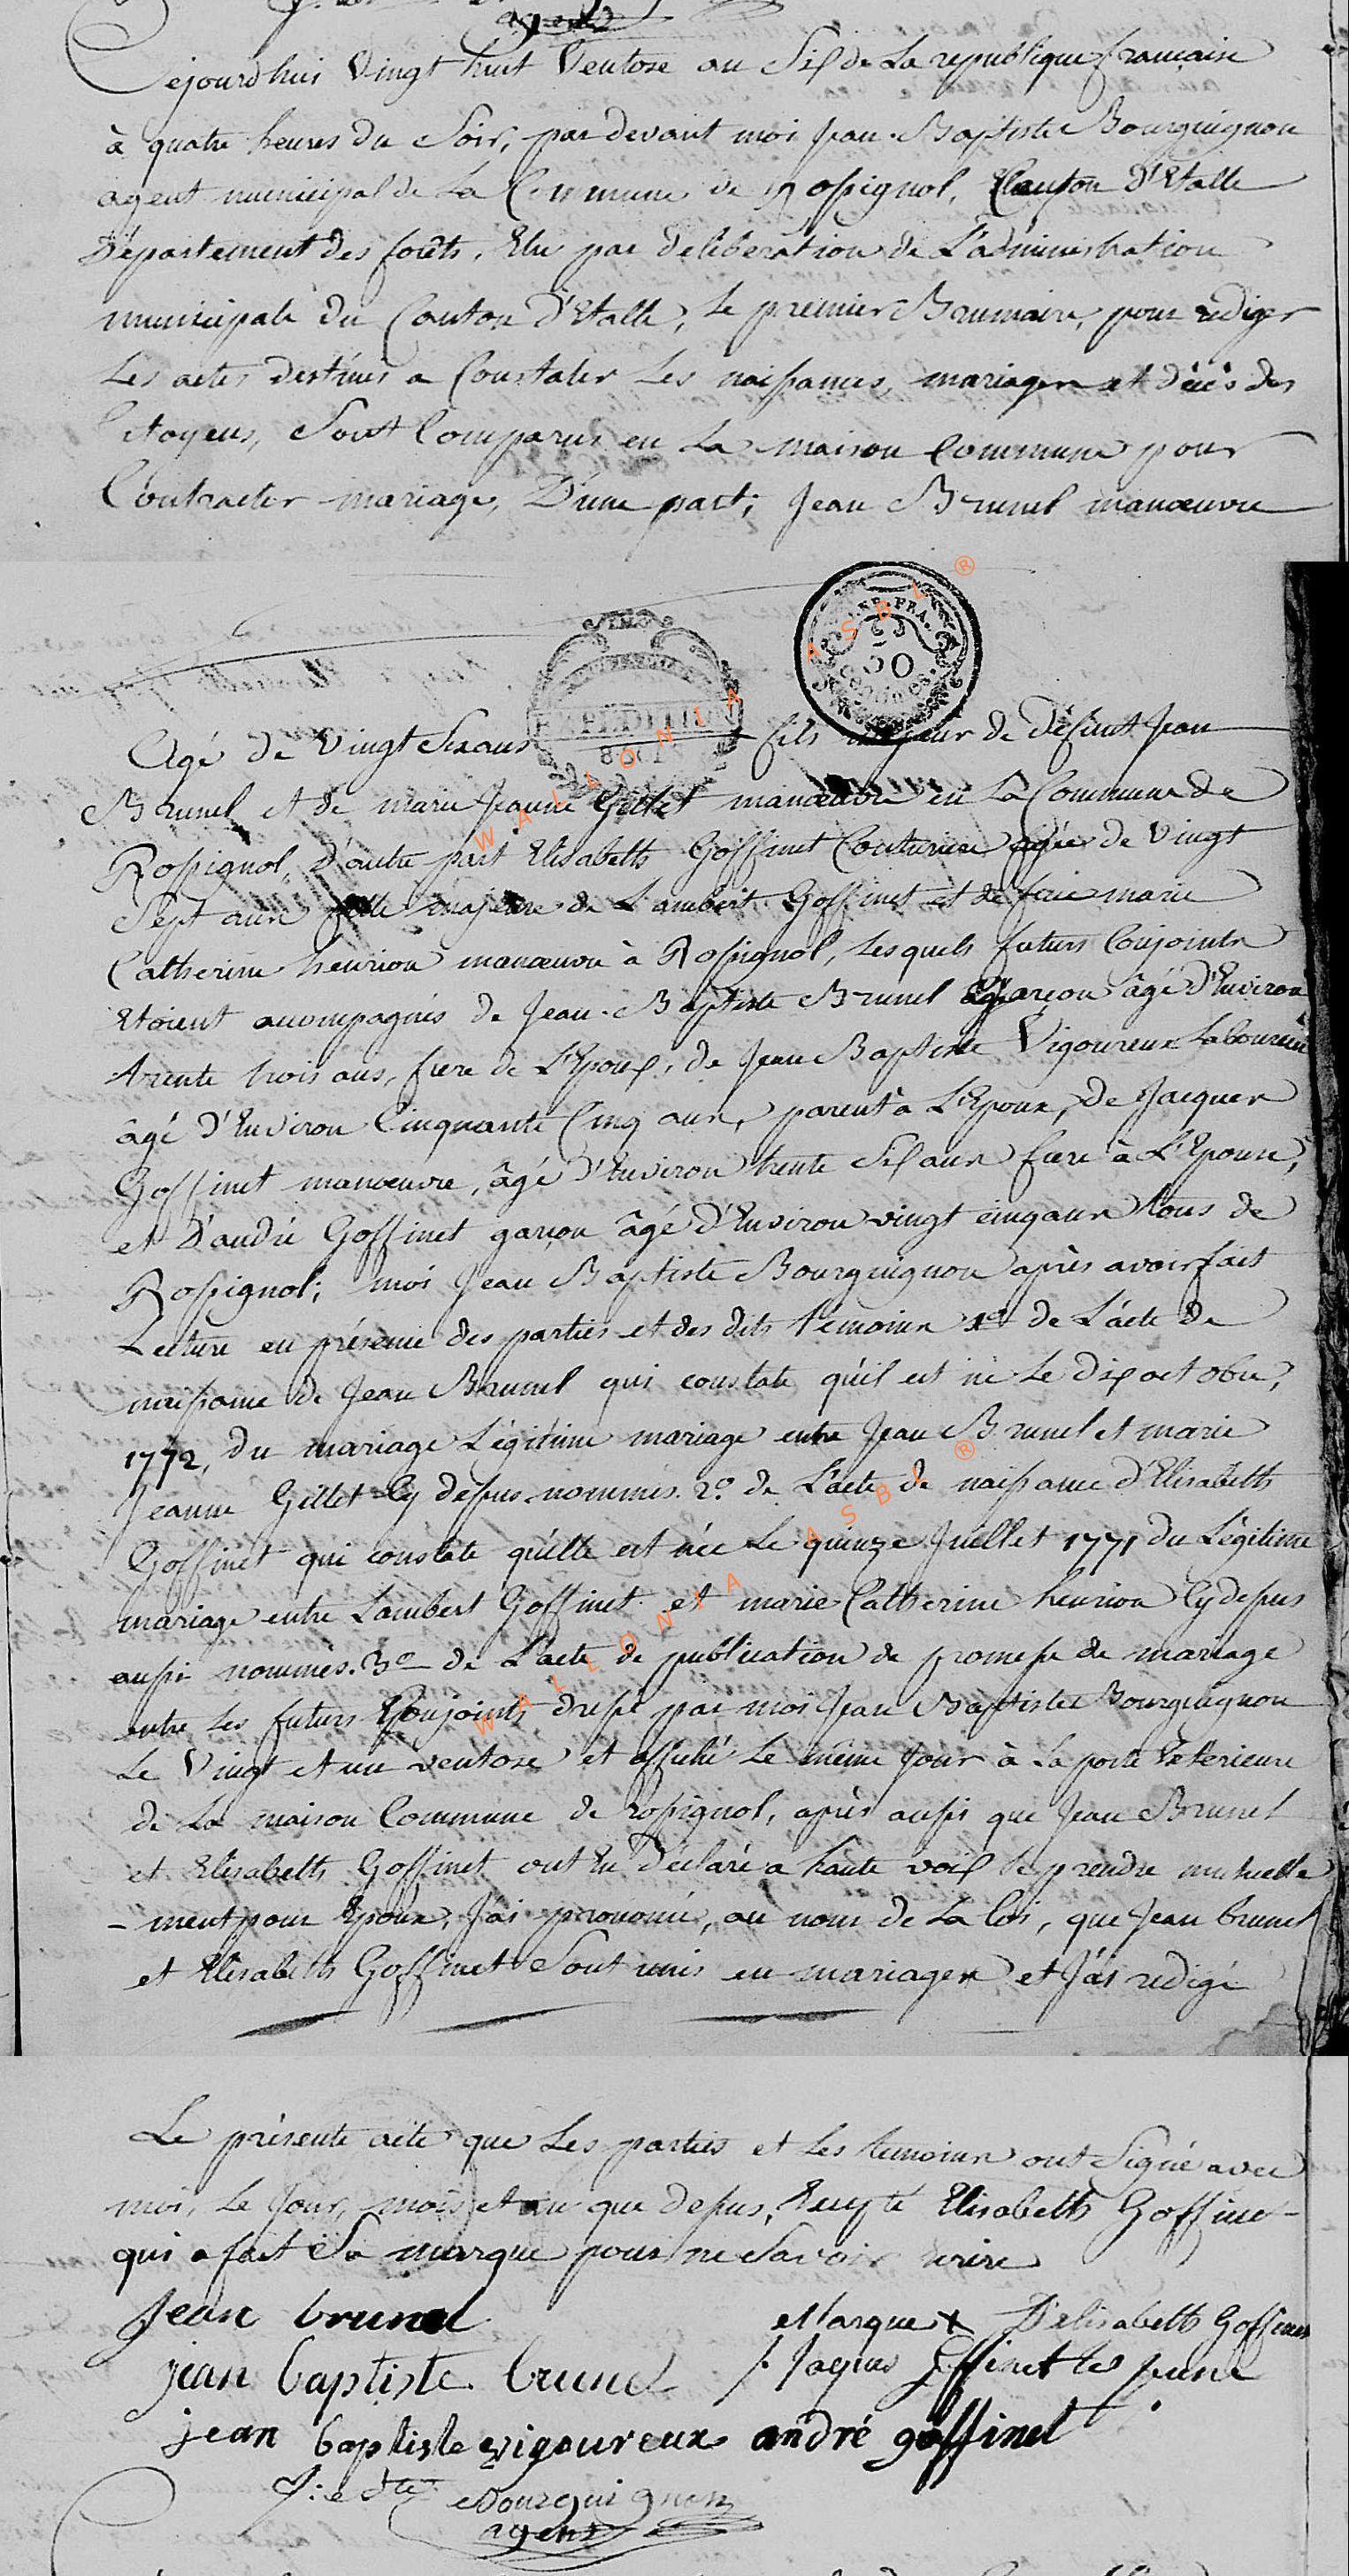 agent
Cejourd'hui Vingt huit Ventose an Six de La republique francaise
à quatre heures du Soir, par devant moi Jean-Baptiste Bourguignon
agent municipal de La Commune de Rossignol, Canton d'Etalle
Département des forêts, Elu par deliberation de L'administration
municipale du Canton d'Etalle, le premier Brumaire, pour rediger
Les actes destinés a Constater Les naissances, mariages et décès des
Citoyens, Sont Comparus en La maison Commune pour
Contracter mariage, D'une part; Jean Brunel manœuvre
WALLONIA ASBL ®
RÉP. FRA.
50
centimes
EXPÉDITION
Agé de Vingt Six ans fils majeur de Défunt Jean
Brunel et de marie Jeanne Gillet manœuvre en La Commune de
Rossignol, D'autre part Elisabeth Goffinet Couturiere agée de Vingt
Sept ans fille majeure de Lambert Goffinet et de feue marie
Catherine henrion manœuvre à Rossignol, Lesquels futurs Conjoints
Etoient accompagnés de Jean-Baptiste Brunel garçon âgé d'Environ
trente trois ans, frere de L'Epoux, de Jean Baptiste Vigoureux Laboureur
âgé D'Environ Cinquante Cinq ans, parent à L'Epoux, de Jacques
Goffinet manœuvre, âgé d'Environ trente Six ans frere à L'Epouse,
et D'andré Goffinet garçon âgé d'Environ vingt cinq ans tous de
Rossignol; moi Jean Baptiste Bourguignon après avoir fait
Lecture en présence des parties et des dits témoins 1º de L'acte de
naissance de Jean Brunel qui constate qu'il est né Le dix octobre,
1772, du mariage Légitime mariage entre Jean Brunel et marie
Jeanne Gillet Cy dessus nommés. 2º de L'acte de naissance d'Elisabeth
Goffinet qui constate qu'elle est née Le quinze Juillet 1771 du Légitime
mariage entre Lambert Goffinet et marie Catherine henrion Cy dessus
aussi nommés. 3º de L'acte de publication de promesse de mariage
entre Les futurs Conjoints dressé par moi Jean Baptiste Bourguignon
Le Vingt et un ventose et affiché Le même Jour à La porte Exterieure
de La maison Commune de rossignol, après aussi que Jean Brunel
et Elisabeth Goffinet ont Eu Déclaré a haute voix se prendre mutuelle
-ment pour Epoux, J'ai prononcé, au nom de La loi, que Jean brunel
et Elisabeth Goffinet Sont unis en mariage et J'ai redigé
WALLONIA ASBL ®
Le présente acte que Les parties et Les temoins ont Signé avec
moi, Le Jour, mois et an que dessus, Excepté Elisabeth Goffinet
qui a fait Sa marque pour ne Savoir ecrire
Jean brunel
Marque X D'elisabeth Goffinet
jean baptiste brunel
Jaques goffinet les jeune
jean baptiste vigoureux andré goffinet
J: Bte Bourguignon
agent